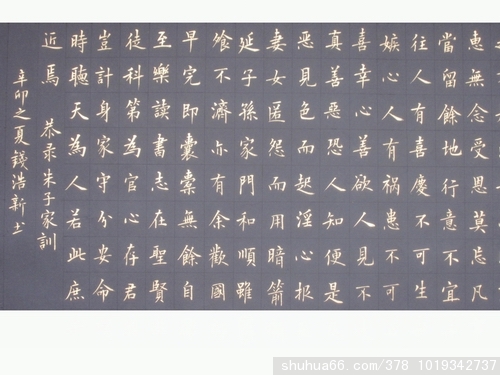 惠無念受恩莫忘凡
當留餘地得意不宜
往人有喜慶不可生
嫉心人有禍患不可
喜幸心善欲人見不
真善惡恐人知便是
惡見色而起淫心報
妻女匿怨而用暗箭
延子孫家門和順雖
飧不濟亦有余歡國
早完即囊橐無餘自
至樂讀書志在聖賢
徒科第為官心存君
豈計身家守分安命
時聽天為人若此庶
近焉 恭录朱子家訓
辛卯之夏錢浩新
shuhua66.com/378 1019342737